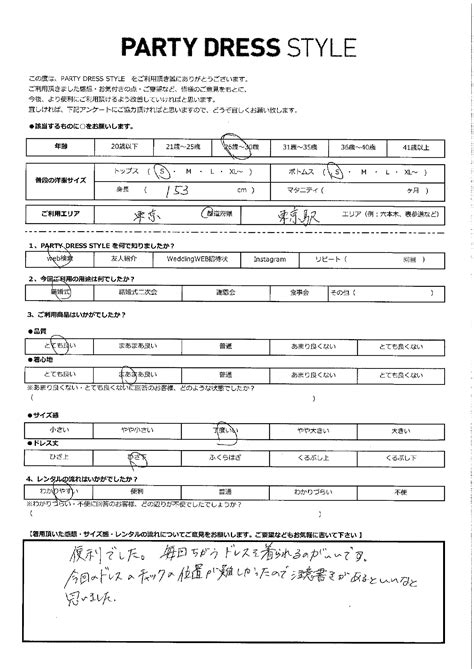 PARTY DRESS STYLE
この度は、PARTY DRESS STYLE をご利用頂き誠にありがとうございます。
ご利用頂きました感想・お気付きの点・ご要望など、皆様のご意見をもとに、
今後、より便利にご利用頂けるよう改善していければと思います。
宜しければ、下記アンケートにご協力頂ければと思いますので、どうぞ宜しくお願い致します。
●該当するものに○をお願いします。
年齢 20歳以下 21歳～25歳 26歳～30歳 31歳～35歳 36歳～40歳 41歳以上
普段の洋服サイズ トップス ( S ・ M ・ L ・ XL～ ) ボトムス ( S ・ M ・ L ・ XL～ )
身長 ( 153 cm ) マタニティ ( ヶ月 )
ご利用エリア 東京 都道府県 東京駅 エリア (例：六本木、表参道など)
1、PARTY DRESS STYLE を何で知りましたか？
web検索 友人紹介 WeddingWEB招待状 Instagram リピート ( 回目 )
2、今回ご利用の用途は何でしたか？
結婚式 結婚式二次会 謝恩会 食事会 その他 ( )
3、ご利用商品はいかがでしたか？
●品質
とても良い まあまあ良い 普通 あまり良くない とても良くない
●着心地
とても良い まあまあ良い 普通 あまり良くない とても良くない
※あまり良くない・とても良くないに回答のお客様、どのような状態でしたか？
( )
●サイズ感
小さい やや小さい 丁度いい やや大きい 大きい
●ドレス丈
ひざ上 ひざ下 ふくらはぎ くるぶし上 くるぶし下
4、レンタルの流れはいかがでしたか？
わかりやすい 便利 普通 わかりづらい 不便
※わかりづらい・不便に回答のお客様、どの辺りが不便でしたでしょうか？
( )
【着用頂いた感想・サイズ感・レンタルの流れについてご意見をお願いします。ご要望などもお気軽に書いて下さい】
便利でした。毎回ちがうドレスを着られるのがいいです。
今回のドレスのチャックの位置が難しかったので注意書きがあるといいなと
思いました.